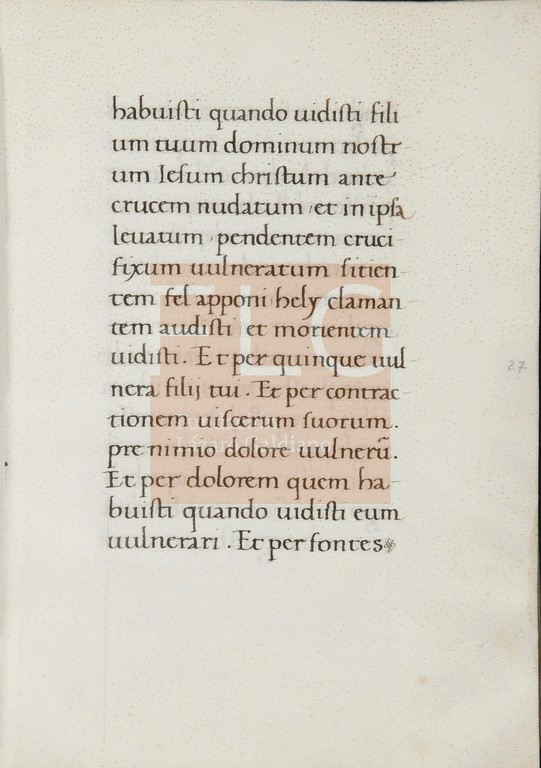 habuisti quando uidisti fili
um tuum dominum nostr
um Iesum christum ante
crucem nudatum et in ipsa
leuatum pendentem cruci
fixum uulneratum sitien
tem fel apponi hely claman
tem audisti et morientem
uidisti. Et per quinque uul
nera filij tui. Et per contrac
tionem uiscerum suorum.
pre nimio dolore uulnerū.
Et per dolorem quem ha
buisti quando uidisti eum
uulnerari. Et per fontes
27
FLG
Lázaro Galdiano